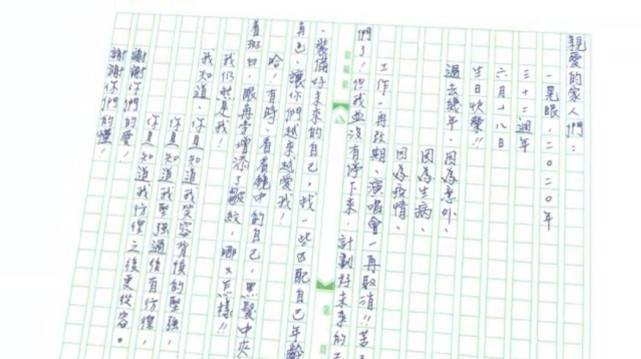 親愛的家人們：
一晃眼，二〇二〇年
三十三週年
六月十八日
生日快樂!!
過去幾年，因為意外、
因為生病、
因為疫情、
工作一再改期、演唱會一再取消!!苦了
們了！但我並沒有停下來，計劃好未來的工
、裝備好未來的自己，找一些匹配自己年齡
自己，讓你們越來越愛我！
哈！有時，看看鏡中的自己，黑髮中夾
著斑白，眼角字增添一皺紋，哪又怎樣!!
我仍然是我！
我知道，你是知道我笑容背後的堅強，
你是知道我堅強過後有彷徨，
你是知道我彷徨之後更從容。
謝謝你們的愛！
謝謝你們的懂！